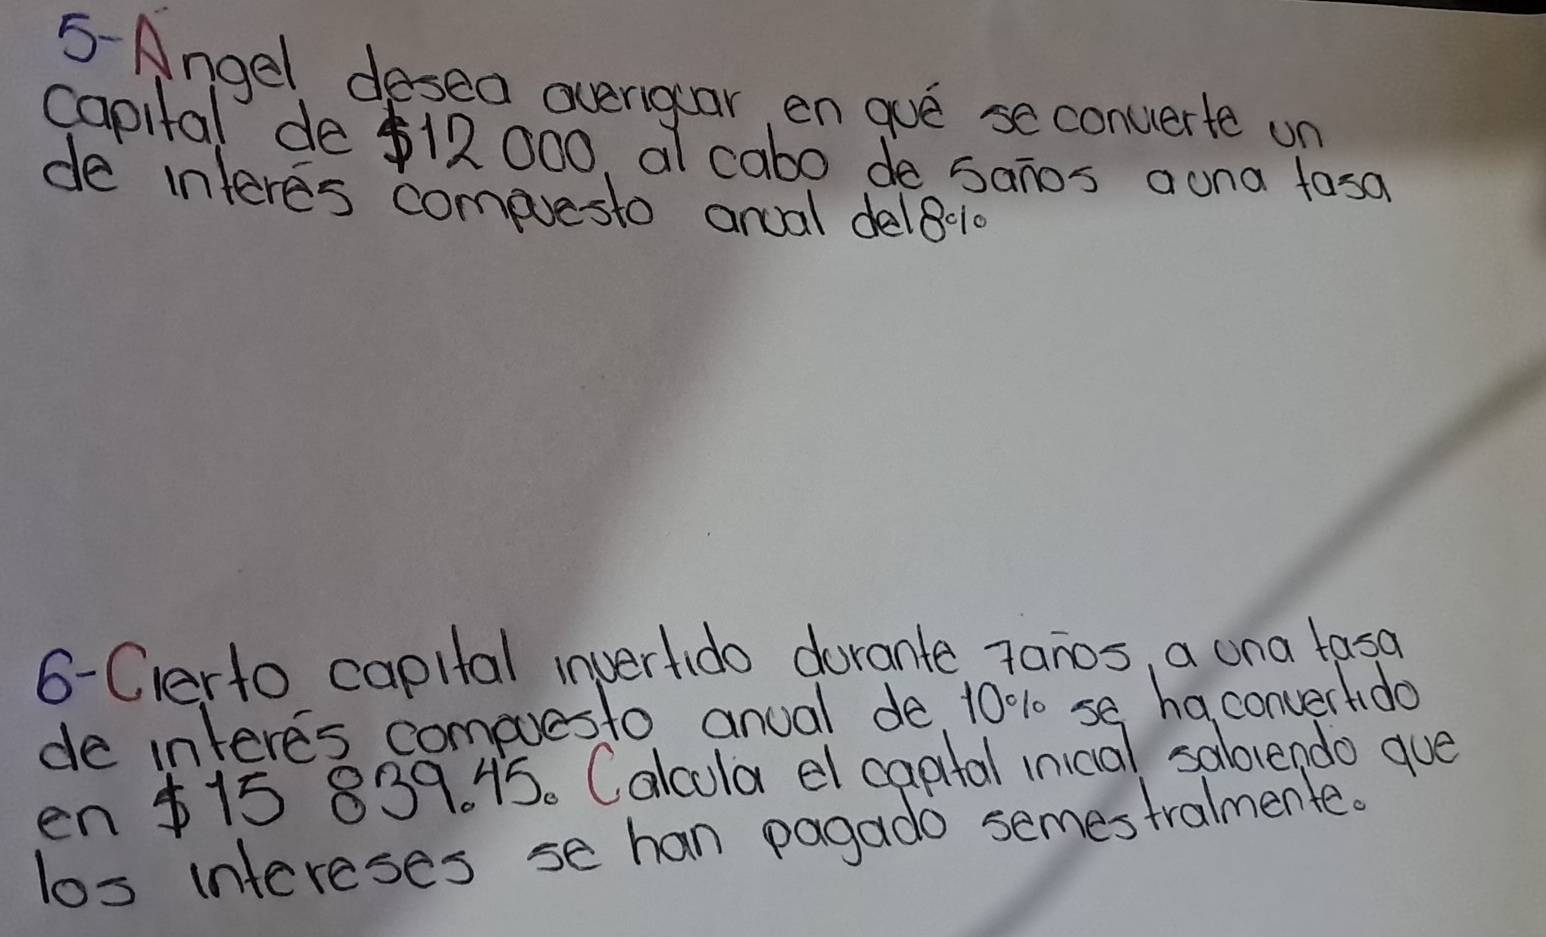 5-Angel desea averiguar, en qué se convierte un
capital de $12 000, al cabo de 5años a una tasa
de interés compuesto anual del8%
6-Cierto capital invertido durante 7años, a una tasa
de interés compuesto anual de 10% se ha convertido
en $15 839.45. Calcula el capital inicial, sabiendo que
los intereses se han pagado semestralmente.